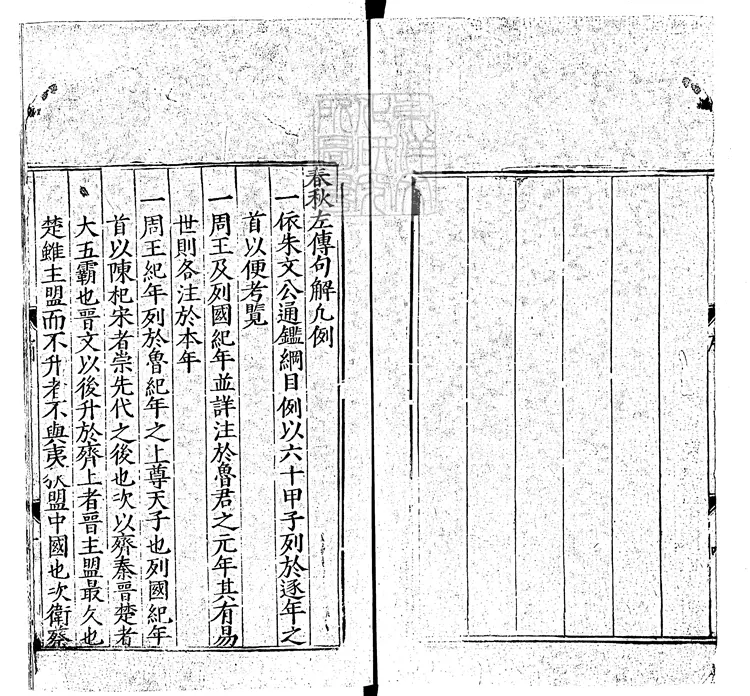 春秋左傳句解凡例
一依朱文公通鑑綱目例以六十甲子列於逐年之
首以便考覽
一周王及列國紀年並詳注於魯君之元年其有易
世則各注於本年
一周王紀年列於魯紀年之上尊天子也列國紀年
首以陳杞宋者崇先代之後也次以齊秦晉楚者
大五霸也晉文以後升於齊上者晉主盟最久也
楚雖主盟而不升者不與夷狄盟中國也次衛蔡